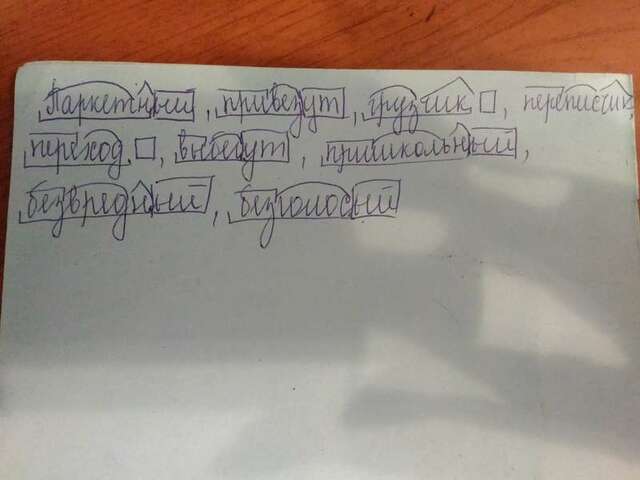 Паркетный, привезут, грузчик, переписчик,
переход, выведут, пришкольный,
безвредный, безголосый